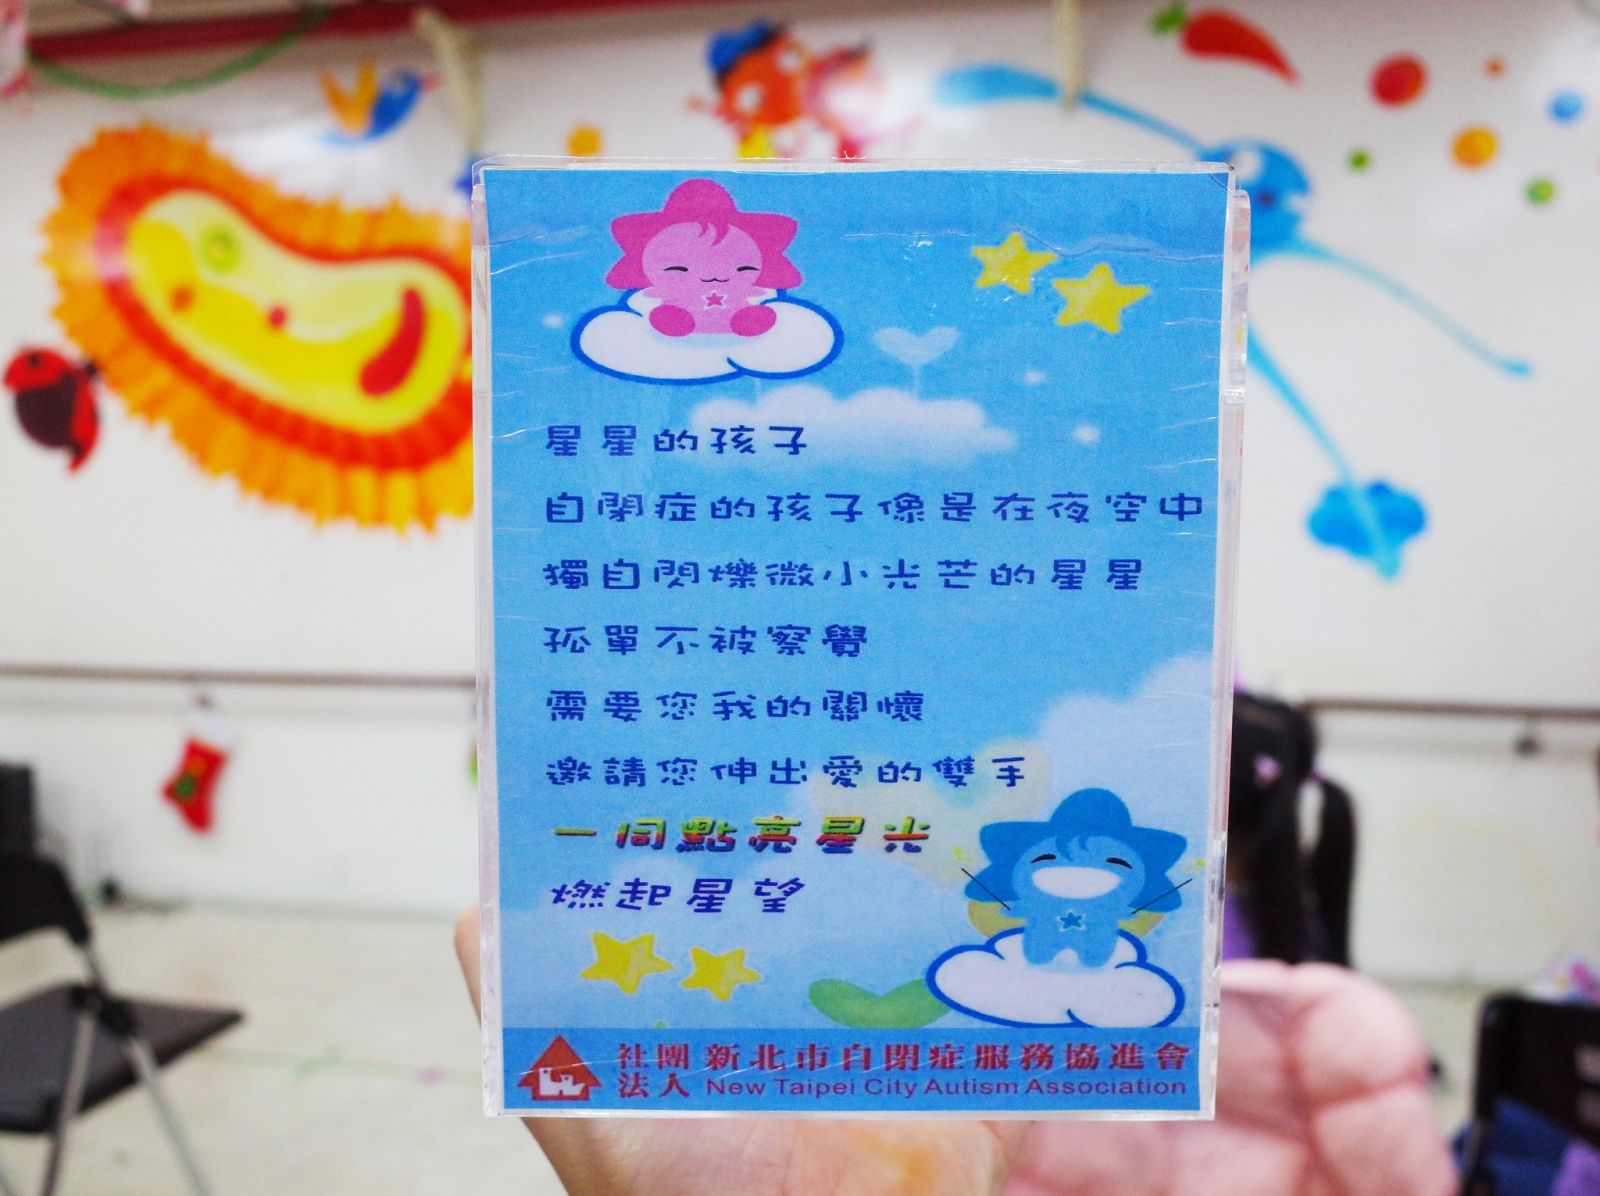 星星的孩子
自閉症的孩子像是在夜空中
獨自閃爍微小光芒的星星
孤單不被察覺
需要您我的關懷
邀請您伸出愛的雙手
一同點亮星光
燃起星望
社團法人 新北市自閉症服務協進會
New Taipei City Autism Association